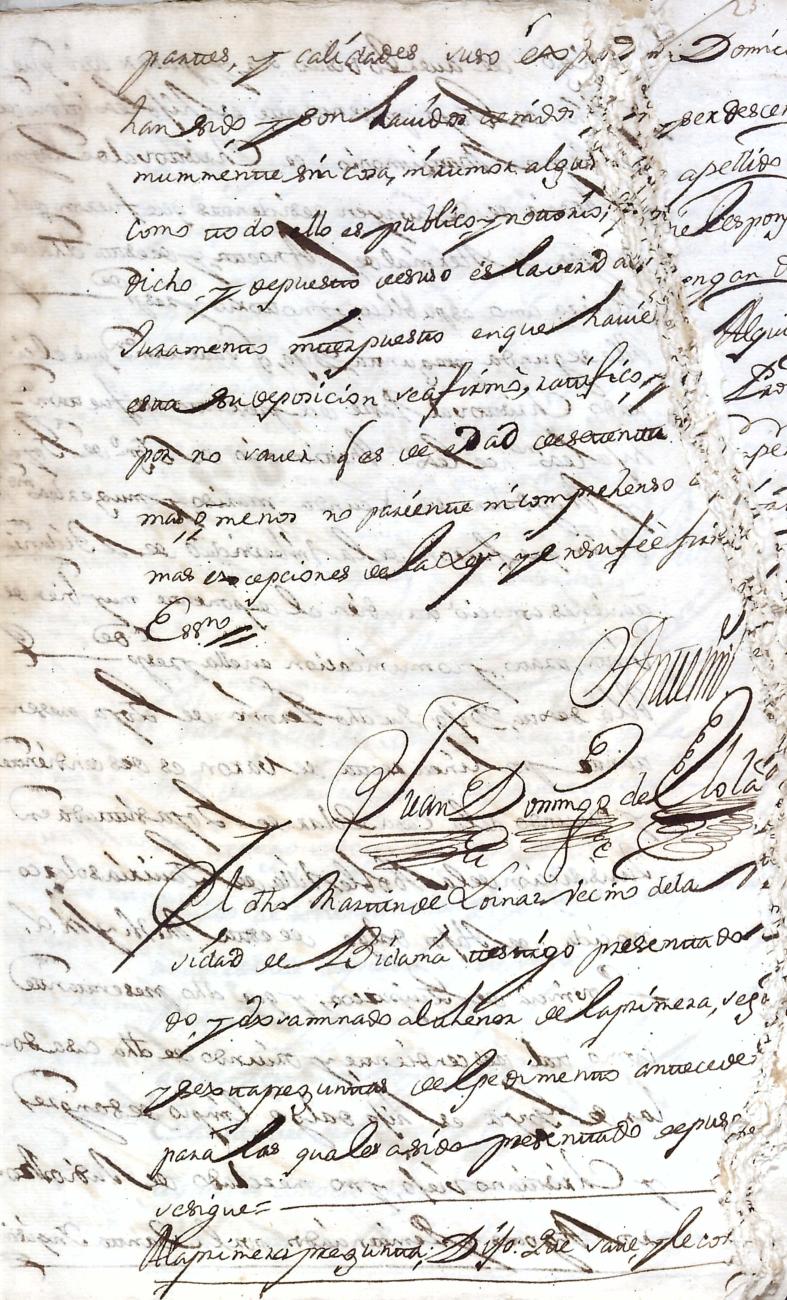 partes, y calidades suso
Domic
han sido y son havidos tenidos
y ser descen
mummente sin cosa, ni rumor algu
apellido
como ttodo ello es publico y nottorio,
respon
dicho y depuestto desuso es la verdad
engan
Juramento interpuestto en que havie
Algui
esta su deposicion se afirmò, ratifico, y
por no saver y es de edad de settenta
mas ò menos no pariente ni comprehenso
mas excepciones de la Ley, y en su feè firm
Essno
Juan Domingo de Olola
El dho Martin de Loinaz vecino dela
sidad de Bidama testigo presenttado
do y examinado al thenor de la primera, seg
y sesta preguntas del pedimento anttecede
para las quales asido presenttado depuso
se sigue =
A la primera pregunta, Dijo. Que save, y le co